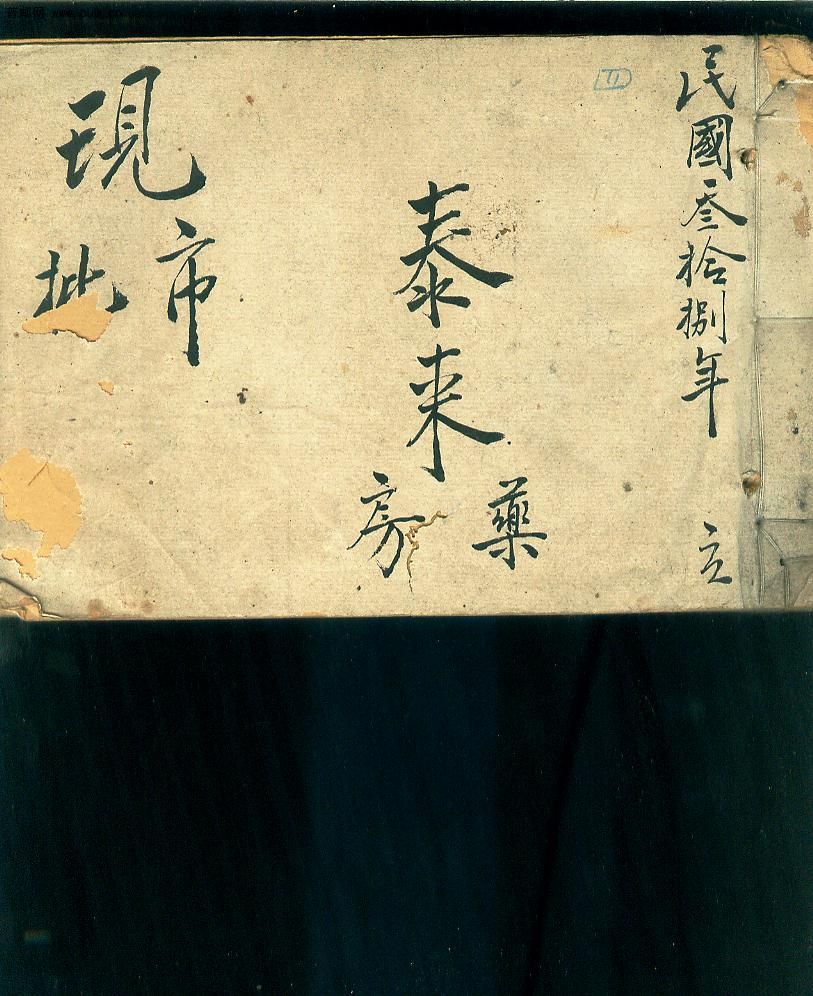 民國叁拾捌年 立
泰来藥房
現市批